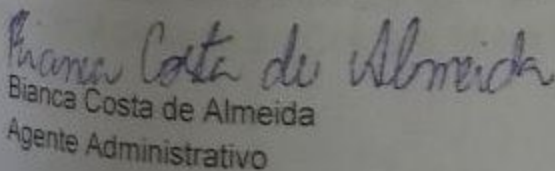 Bianca Costa de Almeida
Bianca Costa de Almeida
Agente Administrativo